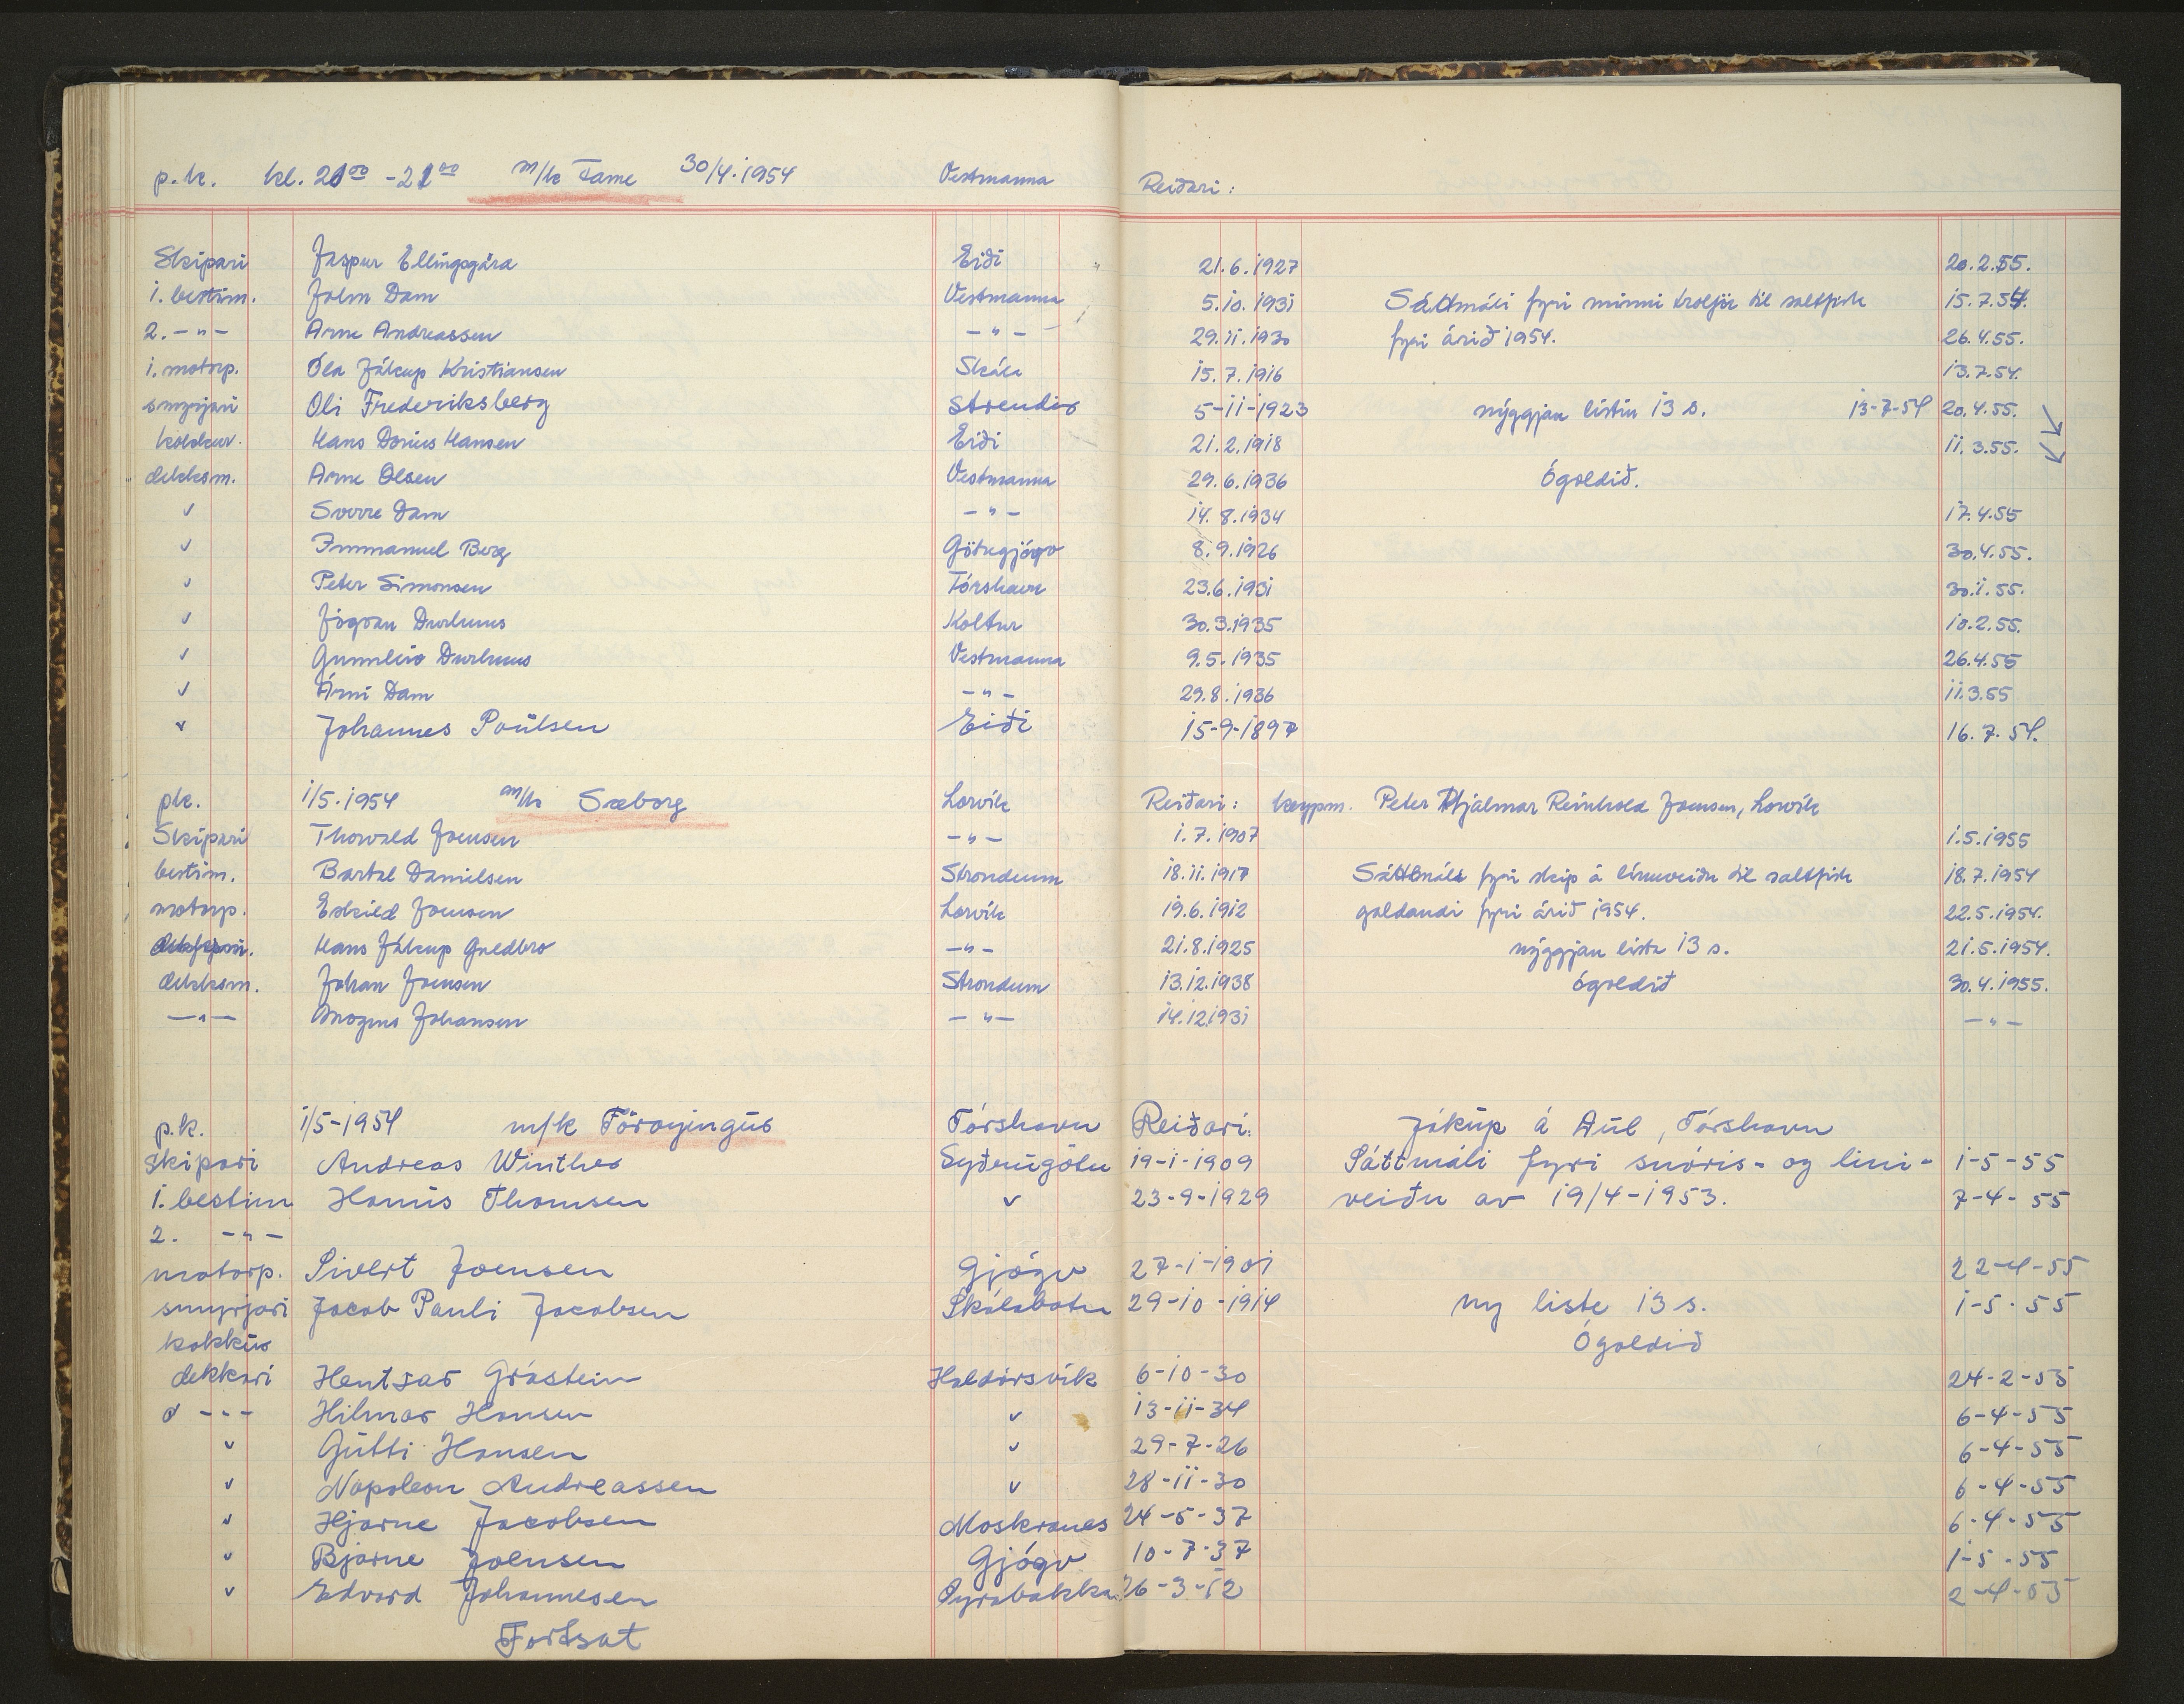 p.k. kl. 21⁰⁰ - 21⁰⁰ m/k Tame 30/4.1954 Vestmanna Reiðari:
Skipari Jaspur Ellingsgárd Eiði 21.6.1927 20.2.55.
1. bestim. John Dam Vestmanna 5.10.1931 Sáttmáli fyri minni troljör til saltfisk 15.7.54.
2. -"- Arne Andreassen -"- 29.11.1930 fyri árið 1954. 26.4.55.
1. motorp. Óla Jákup Kristiansen Skála 15.7.1916 13.7.54.
smyrjari Oli Frederiksberg Strendir 5-11-1923 nýggjan listin 13 s. 13-7-54 20.4.55.
kokkur. Hans Dorius Hansen Eiði 21.2.1918 11.3.55.
dekksm. Arne Olsen Vestmanna 29.6.1936 Ógoldið.
" Sverre Dam -"- 14.8.1934 17.4.55
" Immanuel Berg Götugjógv 8.9.1926 30.4.55.
" Peter Simonsen Tórshavn 23.6.1931 30.1.55.
" Jógvan Durhuus Koltur 30.3.1935 10.2.55.
" Gunnleiv Durhuus Vestmanna 9.5.1935 26.4.55
" Árni Dam -"- 29.8.1936 11.3.55
" Johannes Poulsen Eiði 15-9-1897 16.7.54.
pk. 1/5.1954 m/k Sæborg Lorvík Reiðari: keypm. Peter Hjalmar Reinhold Joensen, Lorvík
Skipari Thorvald Joensen -"- 1.7.1907 1.5.1955
bestim. Bartal Danielsen Strondum 18.11.1917 Sáttmáli fyri skip á línuveiðu til saltfisk 18.7.1954
motorp. Eskild Joensen Lorvík 19.6.1912 galdandi fyri árið 1954. 22.5.1954.
Hans Jákup Guldbro -"- 21.8.1925 nýggjan lista 13 s. 21.5.1954.
dekksm. Johan Joensen Strondum 13.12.1938 ógoldið 30.4.1955.
-"- Magnus Johansen -"- 14.12.1931 -"-
p.k. 1/5-1954 m/k Föroyingur Tórshavn Reiðari: Jákup á Dúl, Tórshavn
Skipari Andreas Winther Syðrugötu 19-1-1909 Sáttmáli fyri snóris- og linu- 1-5-55
1. bestim Hanus Thomsen " 23-9-1929 veiðu av 19/4-1953. 7-4-55
2. -"-
motorp. Sivert Joensen Gjógv 27-1-1901 22-4-55
smyrjari Jacob Pauli Jacobsen Skálabotn 29-10-1914 ny liste 13 s. 1-5-55
kokkur Ógoldið
dekkari Hentzar Grástein Haldórsvík 6-10-30 24-2-55
-"- Hilmar Hansen " 13-11-34 6-4-55
" Gutti Hansen " 29-7-26 6-4-55
" Napoleon Andreassen " 28-11-30 6-4-55
" Hjarne Jacobsen Moskranes 24-5-37 6-4-55
" Bjarne Joensen Gjógv 10-7-37 1-5-55
" Edvard Johannesen Oyrabakka 26-3-12 2-4-55
Fortsat